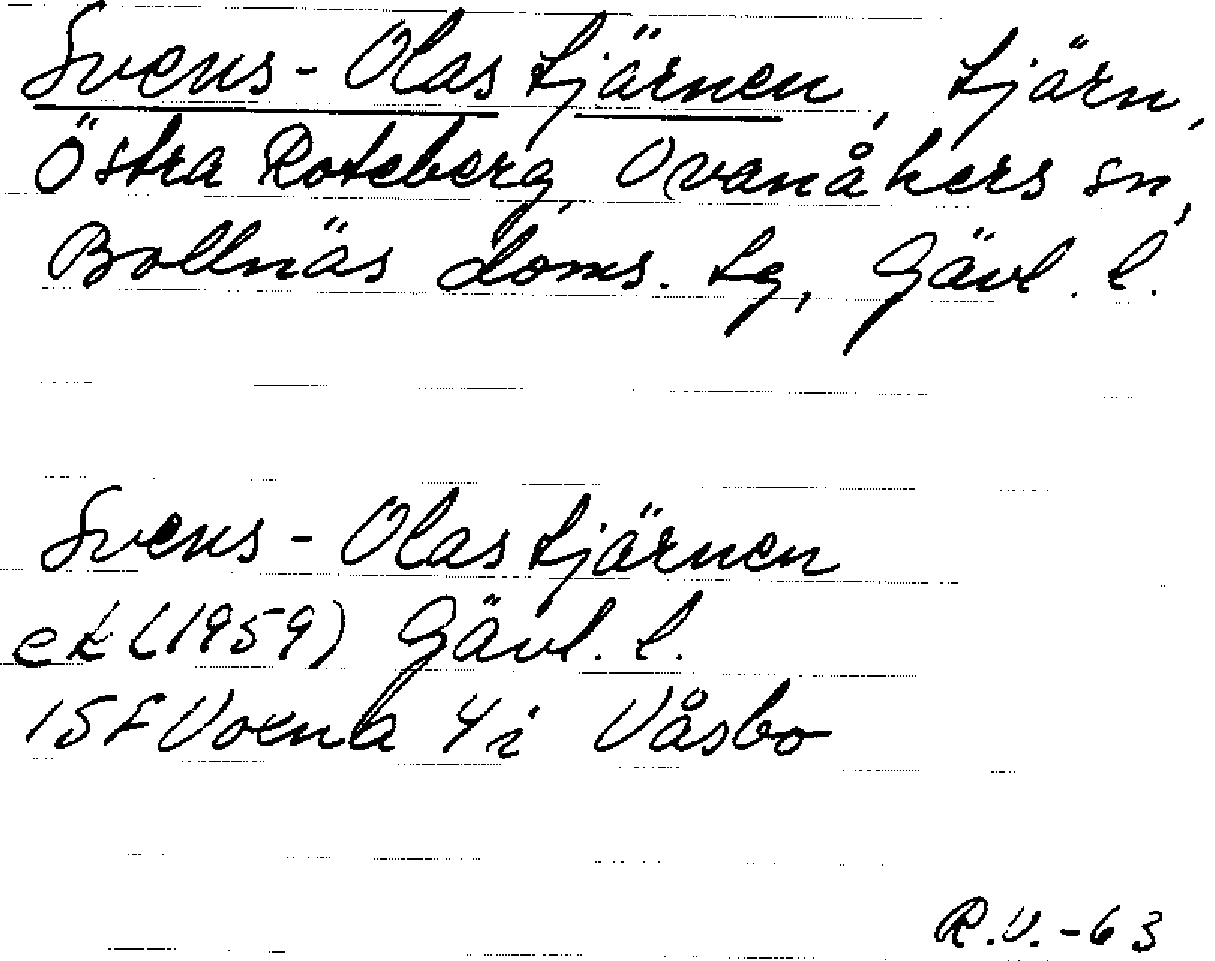 Svens-Olastjärnen, tjärn,
Östra Roteberg, Ovanåkers sn,
Bollnäs doms. tg, Gävl. l.
Svens-Olastjärnen
ek (1959) Gävl. l.
15F Voxna 4i Våsbo
R.V.-63